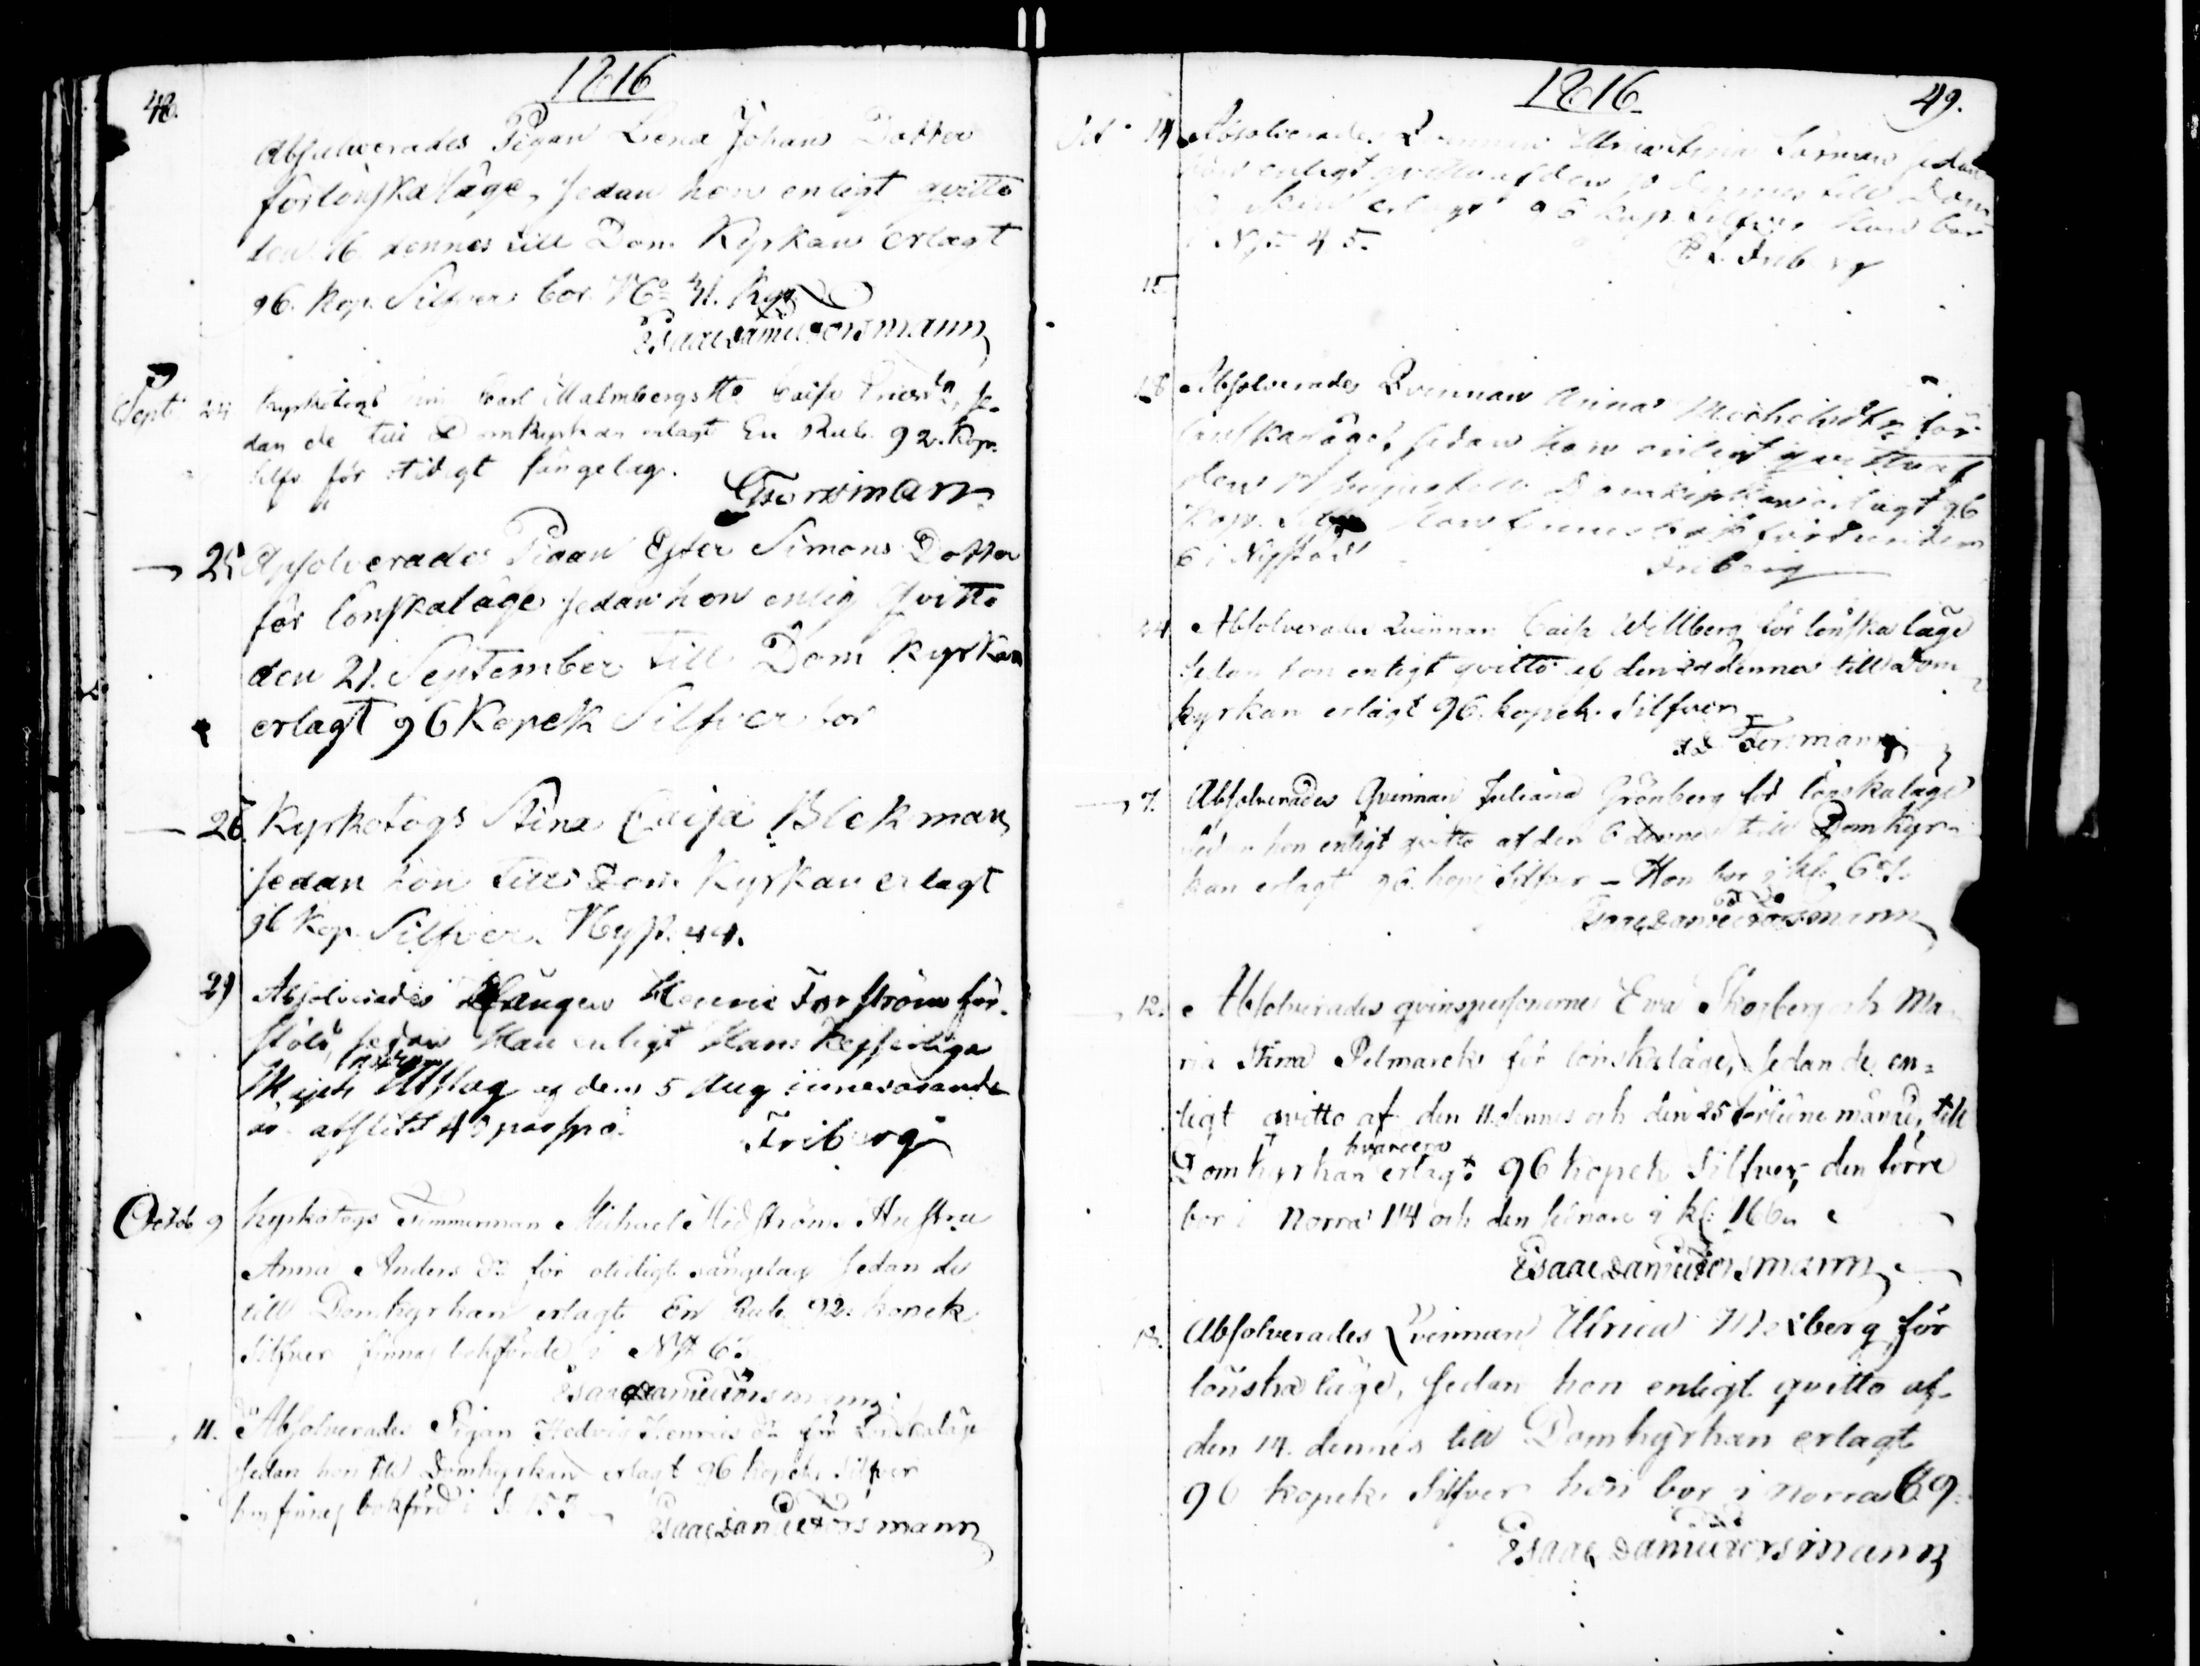 48.
1816
Absolverades Pigan Lena Johans Dotter
för lönskaläge, sedan hon enligt qvitto
den 16 dennes till Dom Kyrkan erlagt
96. Kop. Silfver bor N:o 31. Kyr
Esaac Daniel Forsmann
Sept. 24 Kyrkotogs Carl Malmbergs H:o Caisa, se-
dan de till Domkyrkan erlagt En Rub. 92. Kop.
Silfv för otidigt sängelag.
Forsman
25 Absolverades Pigan Ester Simons Dotter
för lönskaläge sedan hon enlig Qvitto
den 21. September till Dom Kyrkan
erlagt 96 Kopek Silfver bor
26. Kyrkotogs Stina Caisa Blekman
sedan hon till Dom Kyrkan erlagt
96 Kop. Silfver. Nyst. 44.
29 Absolverades Fången Henric Forström för
stöld, sedan Han enligt Hans Kejserliga
Majts Utslag af den 5 Aug innevarande
år afslitit 40 par spö.
Friberg
Octob 9 Kyrkotogs Timmerman Michael Hidström Hustru
Anna Anders dr för otidigt sängelag sedan de
till Domkyrkan erlagt En Rub. 92. kopek
Silfver finnas bokförde i N
Esaac Daniel Forsmann
11. Absolverades Pigan Hedvig Henrics dr för Lönskaläge
sedan hon till Domkyrkan erlagt 96 kopek Silfver
hon finnes bokförd i S. 157
Esaac Daniel Forsmann
1816
49.
14 Absolverades Qvinnan sedan
hon enligt qvitto af den dennes till Dom
erlagt 96 kop. Silfver Hon bor
i Nyst 45.
Friberg
15
18 Absolverades Qvinnan Anna Michelsdtr för
lönskaläge, sedan hon enligt qvitto af
den 17 hujus till Domkyrkan erlagt 96
Kop. Silfv Hon finnes
6 i Nystad
Friberg
24 Absolverades Qvinnan Caisa Wellberg för lönska läge
sedan hon enligt qvitto af den 24 dennes till Dom
kyrkan erlagt 96. kopek. Silfver
Forsmann
7. Absolverades Qvinnan Juliana Grönberg för lönskaläge
sedan hon enligt qvitto af den 6 dennes till Domkyr-
kan erlagt 96. kope Silfver – Hon bor i kl. 67.
Esaac Daniel Forsmann
12. Absolverades qvinspersonerne Eva Skogberg och Ma
ria Stina Pelmarck för lönskaläge, sedan de en=
ligt qvitto af den 11 dennes och den 25 förledne månad, till
Domkyrkan hvardera erlagt 96 kopek Silfver, den förre
bor i Norra 114 och den senare i kl: 166.
Esaac Daniel Forsmann
Absolverades Qvinnan Ulrica Mexberg för
lönska läge, sedan hon enligt qvitto af
den 14. dennes till Domkyrkan erlagt
96 kopek Silfver hon bor i norra 69.
Esaac Daniel Forsmann